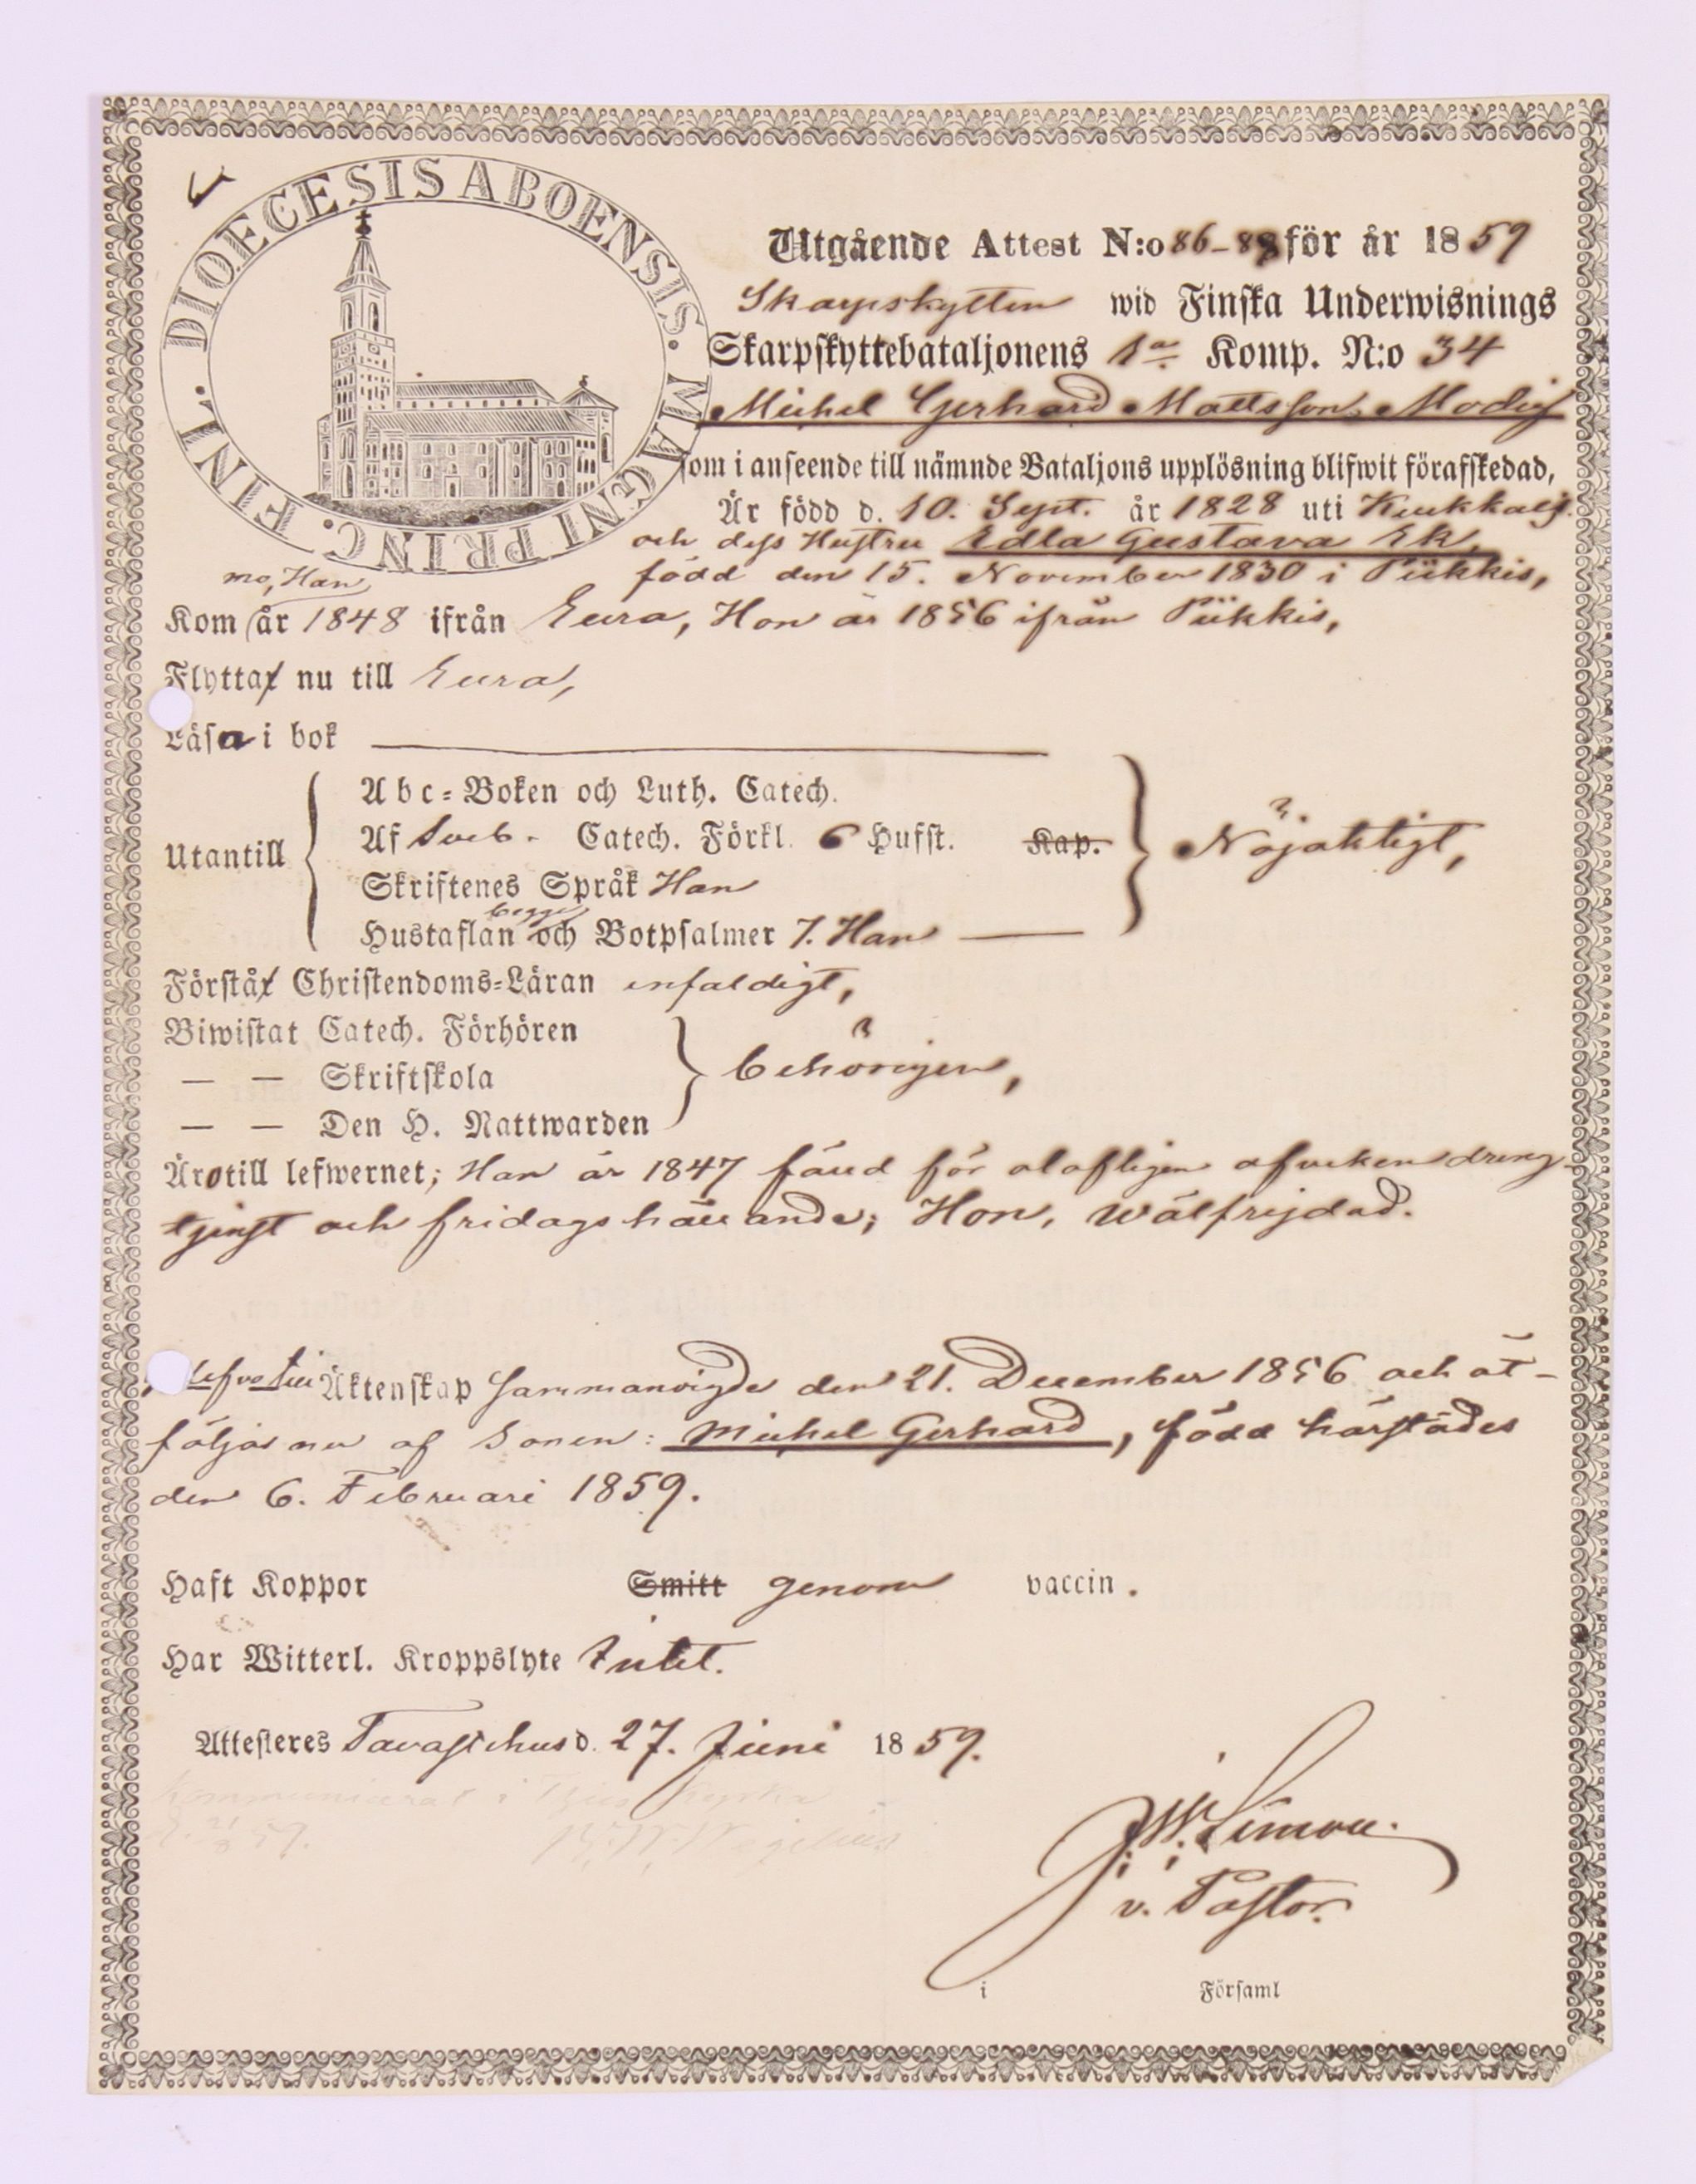 DIOECESIS ABOENSIS. MAGNI PRINC. FINL.
Utgående Attest N:o 86-88 för år 1859
Skarpskytten wid Finska Underwisnings
Skarpskyttebataljonens 1a Komp. N:o 34
Michel Gerhard Mattsson Modig
som i anseende till nämnde Bataljons upplösning blifwit förafskedad,
Är född d. 10. Sept. år 1828 uti
och dess Hustru Edla Gustava Ek,
född den 15. November 1830 i Piikkis,
mo, Han
Kom år 1848 ifrån Eura, Hon år 1856 ifrån Piikkis,
Flyttar nu till Eura,
Läsa i bok
Utantill
Abc-Boken och Luth. Catech.
Af Sveb. Catech. Förkl. 6 Hufst. Kap.
Skriftenes Språk Han
begge
Hustaflan och Botpsalmer 7. Han
Nöjaktigt,
Förstår Christendoms-Läran enfaldigt,
Biwistat Catech. Förhören
— — Skriftskola
— — Den H. Nattwarden
behörigen,
Äro till lefwernet; Han år 1847 fäld för olofligen afveken dreng-
tjenst och fridagshållande; Hon, wälfrejdad.
Äktenskap sammanvigde den 21. December 1856 och åt-
följas nu af Sonen: Michel Gerhard, född härstädes
den 6. Februari 1859.
Haft Koppor Smitt genom vaccin.
Har Witterl. Kroppslyte Intet.
Attesteres Tavastehus d. 27. Juni 1859.
Kommunicerat i
J.W. Limon.
v. Pastor.
i Församl